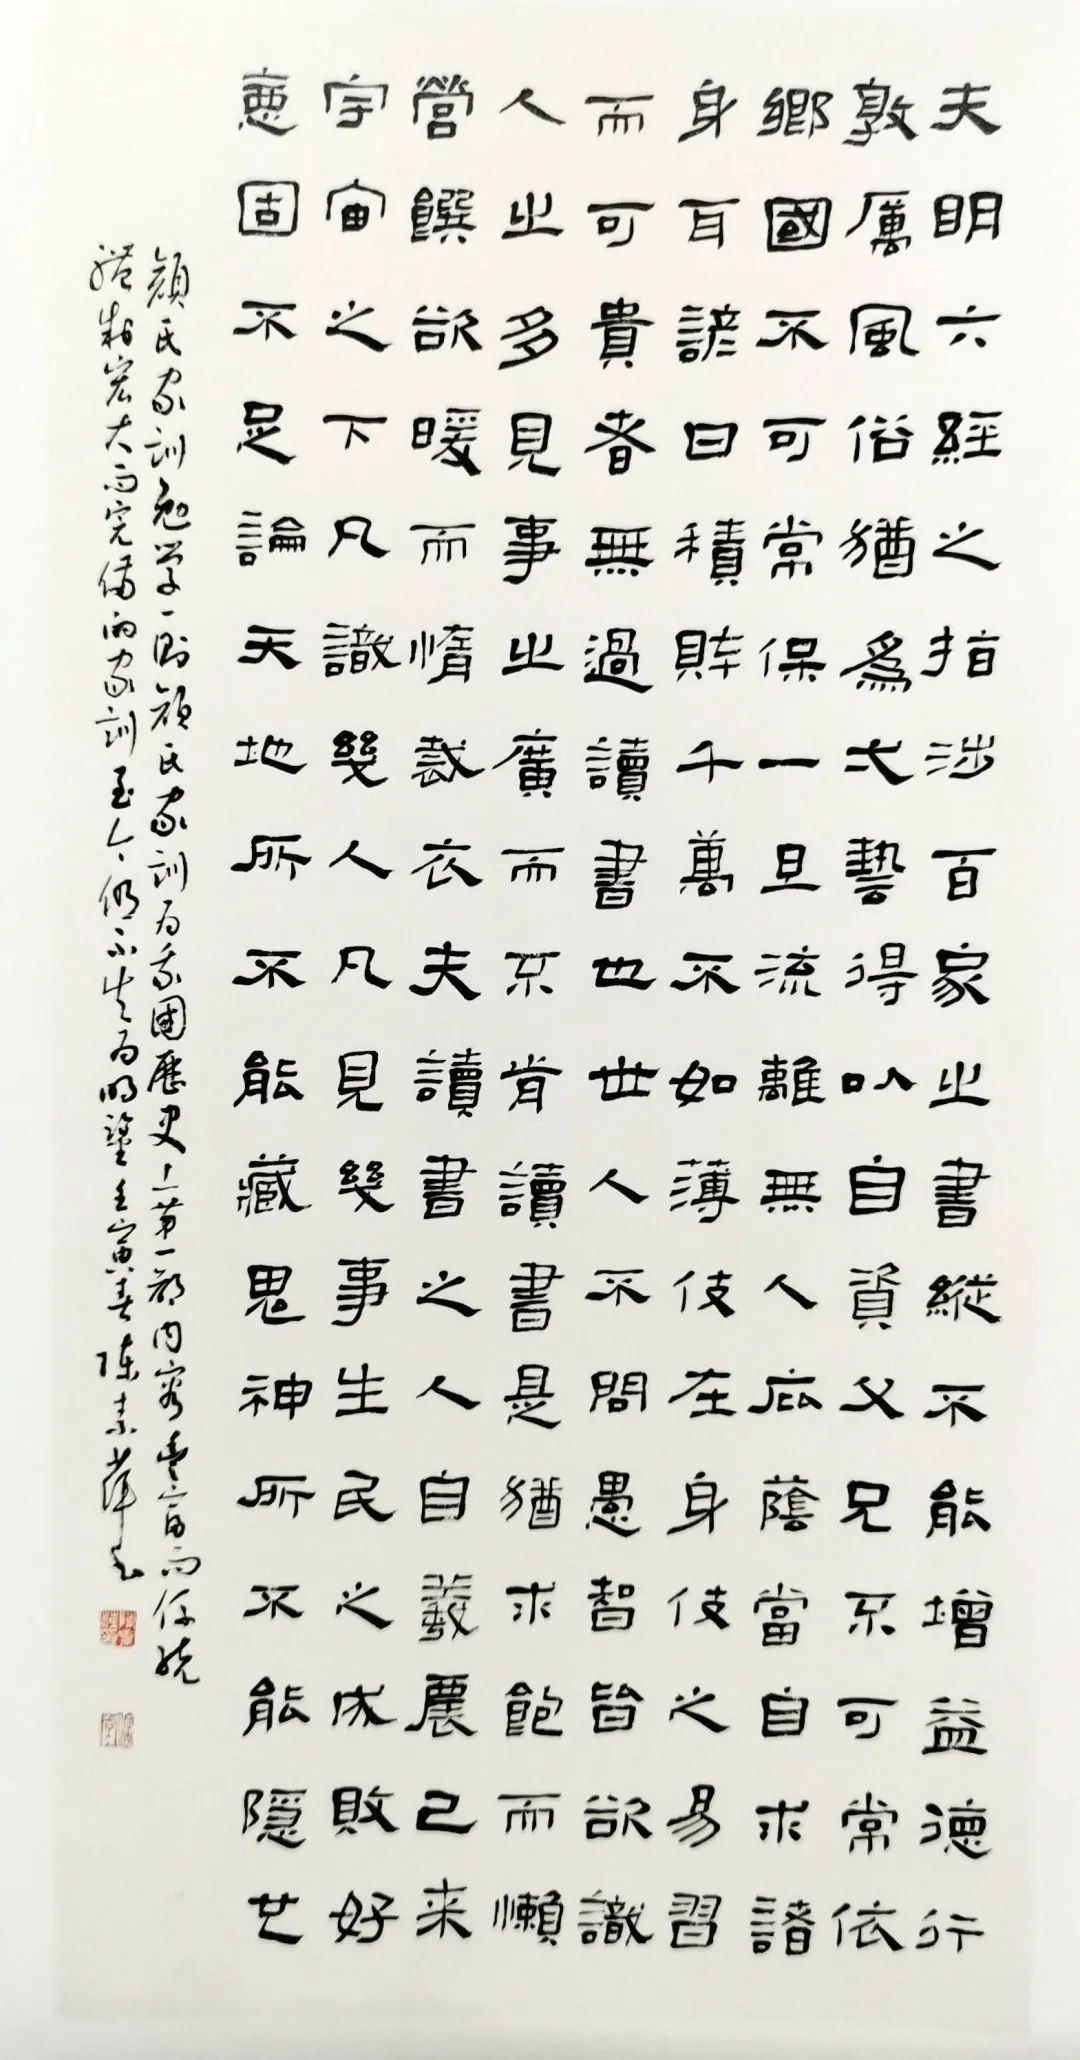 夫明六經之指涉百家之書縱不能增益德行
敦厲風俗猶為弌藝得以自資父兄不可常依
鄉國不可常保一旦流離無人庇蔭當自求諸
身耳諺曰積財千萬不如薄伎在身伎之易習
而可貴者無過讀書也世人不問愚智皆欲識
人之多見事之廣而不肯讀書是猶求飽而懶
營饌欲暖而惰裁衣夫讀書之人自羲農已来
宇宙之下凡識幾人凡見幾事生民之成敗好
惡固不足論天地所不能藏鬼神所不能隱也
顏氏家訓勉學一則顏氏家訓為我國歷史上第一部內容豐富而系統
體製宏大而完備的家訓至今仍不失為明鑒壬寅春陳素萍书